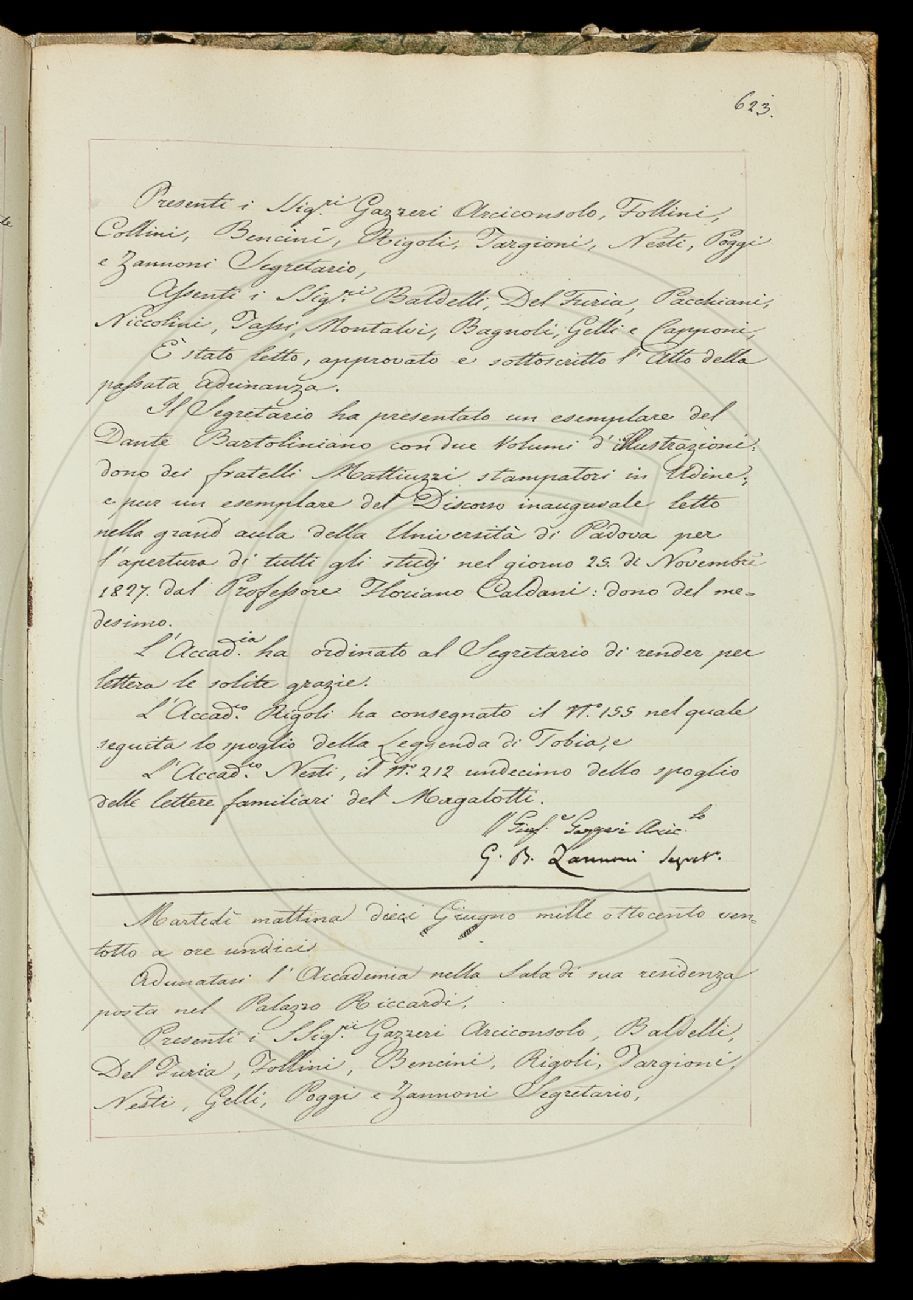 623.
Presenti i SSig.ri Gazzeri Arciconsolo, Follini,
Collini, Bencini, Rigoli, Targioni, Nesti, Poggi
e Zannoni Segretario,
Assenti i SSig.ri Baldelli, Del Furia, Pacchiani,
Niccolini, Tassi, Montalvi, Bagnoli, Gelli e Capponi,
È stato letto, approvato e sottoscritto l'Atto della
passata adunanza.
Il Segretario ha presentato un esemplare del
Dante Bartoliniano con due Volumi d'illustrazioni:
dono dei fratelli Mattiuzzi stampatori in Udine;
e pur un esemplare del Discorso inaugurale letto
nella grand'aula della Università di Padova per
l'apertura di tutti gli studj nel giorno 25. di Novembre
1827. dal Professore Floriano Caldani: dono del me=
desimo.
L'Accad.ia ha ordinato al Segretario di render per
lettera le solite grazie.
L'Accad.co Rigoli ha consegnato il N.o 155 nel quale
seguita lo spoglio della Leggenda di Tobia, e
L'Accad.co Nesti, il N.o 212 undecimo dello spoglio
delle lettere familiari del Magalotti.
Gius.e Gazzeri Arcic.lo
G. B. Zannoni Segret.o
Martedì mattina dieci Giugno mille ottocento ven=
totto a ore undici
Adunatasi l'Accademia nella Sala di sua residenza
posta nel Palazzo Riccardi,
Presenti i SSig.ri Gazzeri Arciconsolo, Baldelli,
Del Furia, Follini, Bencini, Rigoli, Targioni,
Nesti, Gelli, Poggi e Zannoni Segretario,